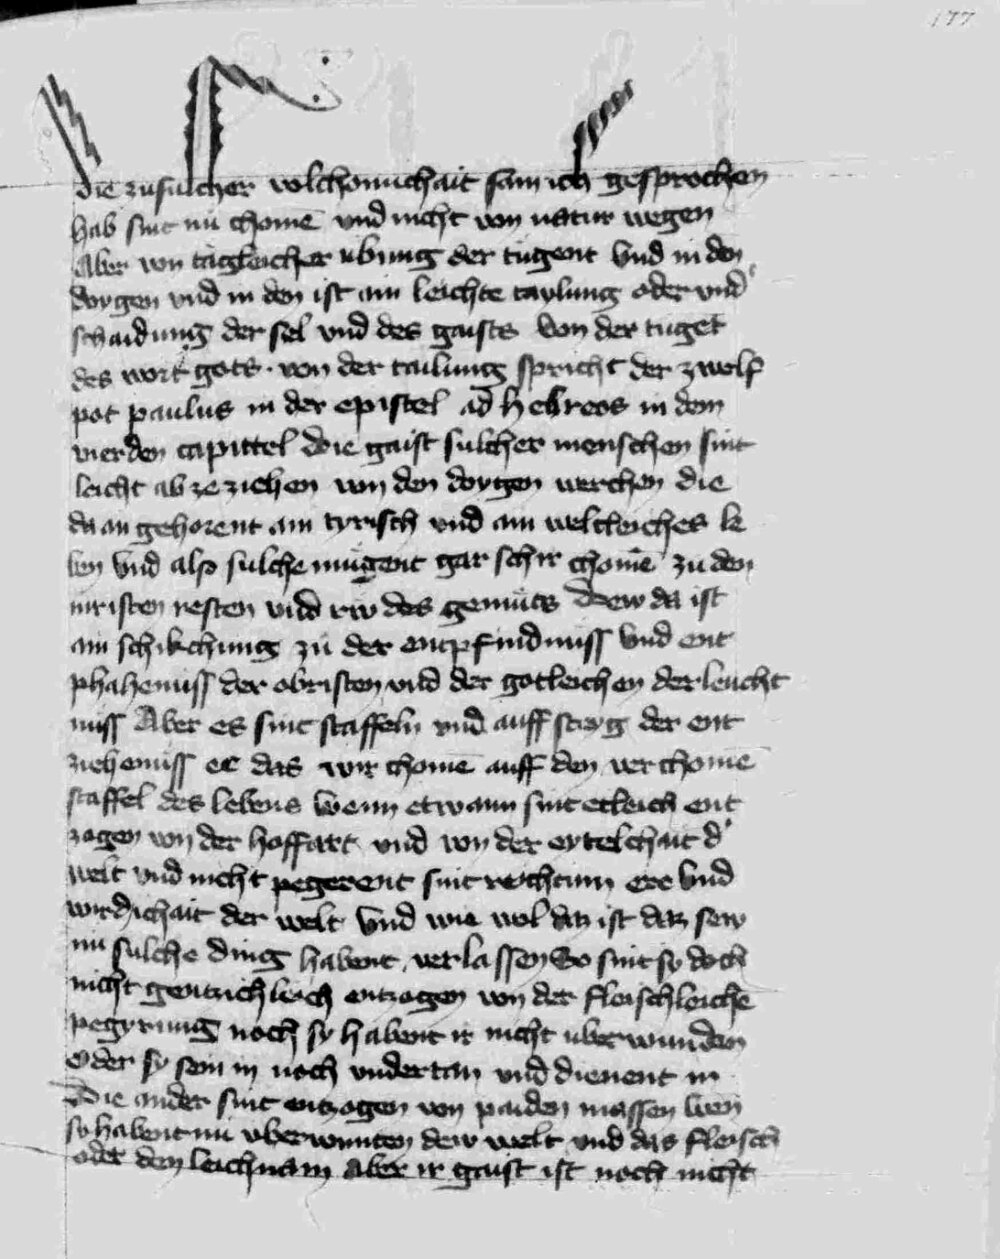 177
die zu sulcher volchomichait sam ich gesprochen
hab sint nu chomē vnd nicht von natur wegen
Aber von tagleicher ubung der tugent Vnd in den
dorgen vnd in den ist ain leichte taylung oder vnd̓
schaidung der sel vnd des gaists Von der tugēt
des wort gots · von der tailung spricht der zwelf
pot paulus in der epistel ad hebreos in dem
vierden capittel Die gaist sulcher menschen sint
leicht ab ze ziehen von den dorgen werchen die
da an gehorent ain tyrisch vnd ain weltleiches le
ben Vnd also sulche mugent gar schir chomē zu den
inristen resten vnd rw des gemuts Dew da ist
ain schikchung zu der entpfindnuss Vnd ent
phahenuss der obristen vnd der gotleichen derleucht
nuss Aber es sint staffeln vnd auff steyg der ent
ziehenuss ee das wir chomē auff den verchomē
staffel des lebens Wenn etwann sint etleich ent
zogen von der hoffart vnd von der eytelchait d̓
welt vnd nicht pegerent sint reichtum ere Vnd
wirdichait der welt Vnd wie wol daz ist daz sew
nu sulche ding habent verlassen So sint sy doch
nicht gentzichleich entzogen von der fleischleichē
pegyrung noch sy habent ir nicht uberwunden
Oder sy sein in noch vndertan vnd dienent in
Die ander sint entzogen von paiden massen wen̄
sy habent nu vberwunten dew welt vnd das fleisch
oder den leichnam Aber ir gaist ist noch nicht